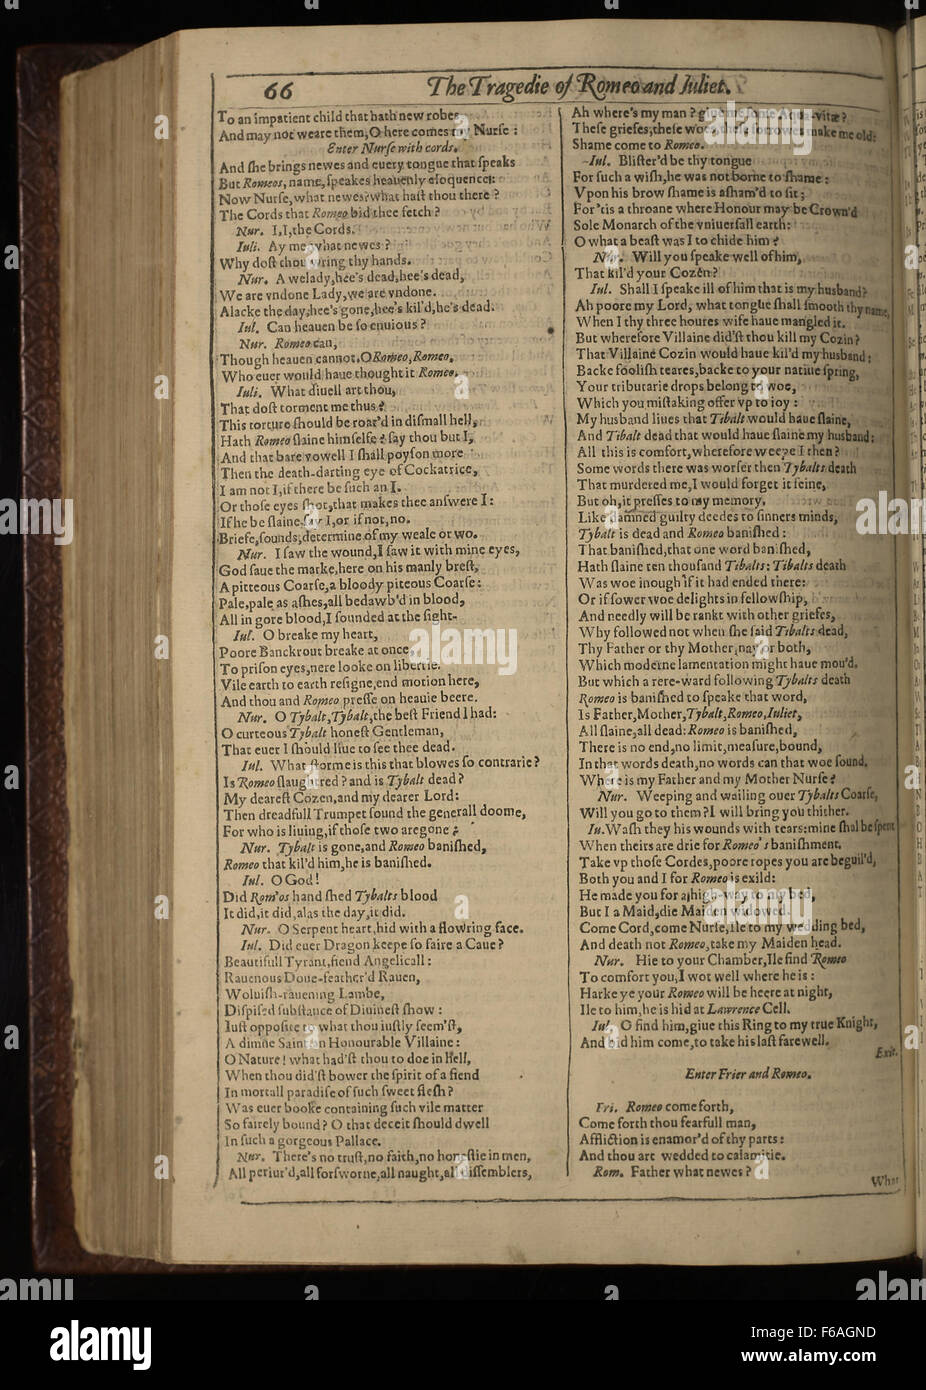 66 The Tragedie of Romeo and Iuliet.
To an impatient child that hath new robes
And may not weare them, O here comes my Nurse :
Enter Nurse with cords.
And ſhe brings newes and euery tongue that ſpeaks
But Romeos, name, ſpeakes heauenly eloquence:
Now Nurſe, what newes? what haſt thou there ?
The Cords that Romeo bid thee fetch ?
Nur. I, I, the Cords.
Iuli. Ay me, what newes ?
Why doſt thou wring thy hands.
Nur. A welady, hee's dead, hee's dead,
We are vndone Lady, we are vndone.
Alacke the day, hee's gone, hee's kil'd, he's dead.
Iul. Can heauen be ſo enuious ?
Nur. Romeo can,
Though heauen cannot. O Romeo, Romeo.
Who euer would haue thought it Romeo.
Iuli. What diuell art thou,
That doſt torment me thus ?
This torture ſhould be roar'd in diſmall hell,
Hath Romeo ſlaine himſelfe ? ſay thou but I,
And that bare vowell I ſhall poyſon more
Then the death-darting eye of Cockatrice,
I am not I, if there be ſuch an I.
Or thoſe eyes ſhot, that makes thee anſwere I :
If he be ſlaine ſay I, or if not, no.
Briefe, ſounds, determine of my weale or wo.
Nur. I ſaw the wound, I ſaw it with mine eyes,
God ſaue the marke, here on his manly breſt,
A pitteous Coarſe, a bloody piteous Coarſe :
Pale, pale as aſhes, all bedawb'd in blood,
All in gore blood, I ſounded at the ſight.
Iul. O breake my heart,
Poore Banckrout breake at once,
To priſon eyes, nere looke on libertie.
Vile earth to earth reſigne, end motion here,
And thou and Romeo preſſe on heauie beere.
Nur. O Tybalt, Tybalt, the beſt Friend I had:
O curteous Tybalt honeſt Gentleman,
That euer I ſhould liue to ſee thee dead.
Iul. What ſtorme is this that blowes ſo contrarie ?
Is Romeo ſlaughtred ? and is Tybalt dead ?
My deareſt Cozen, and my dearer Lord:
Then dreadfull Trumpet ſound the generall doome,
For who is liuing, if thoſe two are gone ?
Nur. Tybalt is gone, and Romeo baniſhed,
Romeo that kil'd him, he is baniſhed.
Iul. O God !
Did Rom'os hand ſhed Tybalts blood
It did, it did, alas the day, it did.
Nur. O Serpent heart, hid with a flowring face.
Iul. Did euer Dragon keepe ſo faire a Caue ?
Beautifull Tyrant, fiend Angelicall :
Rauenous Doue-feather'd Rauen,
Woluiſh-rauening Lambe,
Diſpiſed ſubſtance of Diuineſt ſhow :
Iuſt oppoſite to what thou iuſtly ſeem'ſt,
A dimne Saint an Honourable Villaine :
O Nature ! what had'ſt thou to doe in Hell,
When thou did'ſt bower the ſpirit of a fiend
In mortall paradiſe of ſuch ſweet fleſh ?
Was euer booke containing ſuch vile matter
So fairely bound ? O that deceit ſhould dwell
In ſuch a gorgeous Pallace.
Nur. There's no truſt, no faith, no honeſtie in men,
All periur'd, all forſworne, all naught, all diſſemblers,
Ah where's my man ? giue me ſome Aqua-vitæ ?
Theſe griefes, theſe woes, theſe ſorrowes make me old:
Shame come to Romeo.
Iul. Bliſter'd be thy tongue
For ſuch a wiſh, he was not borne to ſhame :
Vpon his brow ſhame is aſham'd to ſit ;
For 'tis a throane where Honour may be Crown'd
Sole Monarch of the vniuerſall earth :
O what a beaſt was I to chide him ?
Nur. Will you ſpeake well of him,
That kil'd your Cozen ?
Iul. Shall I ſpeake ill of him that is my husband ?
Ah poore my Lord, what tongue ſhall ſmooth thy name,
When I thy three houres wife haue mangled it.
But wherefore Villaine did'ſt thou kill my Cozin ?
That Villaine Cozin would haue kil'd my husband :
Backe fooliſh teares, backe to your natiue ſpring,
Your tributarie drops belong to woe,
Which you miſtaking offer vp to ioy :
My husband liues that Tibalt would haue ſlaine,
And Tibalt dead that would haue ſlaine my husband :
All this is comfort, wherefore weepe I then ?
Some words there was worſer then Tybalts death
That murdered me, I would forget it feine,
But oh, it preſſes to my memory,
Like damned guilty deedes to ſinners minds,
Tybalt is dead and Romeo baniſhed :
That baniſhed, that one word baniſhed,
Hath ſlaine ten thouſand Tibalts : Tibalts death
Was woe inough if it had ended there :
Or if ſower woe delights in fellowſhip,
And needly will be rankt with other griefes,
Why followed not when ſhe ſaid Tibalts dead,
Thy Father or thy Mother, nay or both,
Which moderne lamentation might haue mou'd.
But which a rere-ward following Tybalts death
Romeo is baniſhed to ſpeake that word,
Is Father, Mother, Tybalt, Romeo, Iuliet,
All ſlaine, all dead : Romeo is baniſhed,
There is no end, no limit, meaſure, bound,
In that words death, no words can that woe ſound.
Where is my Father and my Mother Nurſe ?
Nur. Weeping and wailing ouer Tybalts Coarſe,
Will you go to them ? I will bring you thither.
Iu. Waſh they his wounds with tears : mine ſhal be ſpent
When theirs are drie for Romeo's baniſhment.
Take vp thoſe Cordes, poore ropes you are beguil'd,
Both you and I for Romeo is exild :
He made you for a high-way to my bed,
But I a Maid, die Maiden widowed.
Come Cord, come Nurſe, Ile to my wedding bed,
And death not Romeo, take my Maiden head.
Nur. Hie to your Chamber, Ile find Romeo
To comfort you, I wot well where he is :
Harke ye your Romeo will be heere at night,
Ile to him, he is hid at Lawrence Cell.
Iul. O find him, giue this Ring to my true Knight,
And bid him come, to take his laſt farewell.
Exit.
Enter Frier and Romeo.
Fri. Romeo come forth,
Come forth thou fearfull man,
Affliction is enamor'd of thy parts :
And thou art wedded to calamitie.
Rom. Father what newes ?
What
alamy
Image ID: F6AGND
www.alamy.com